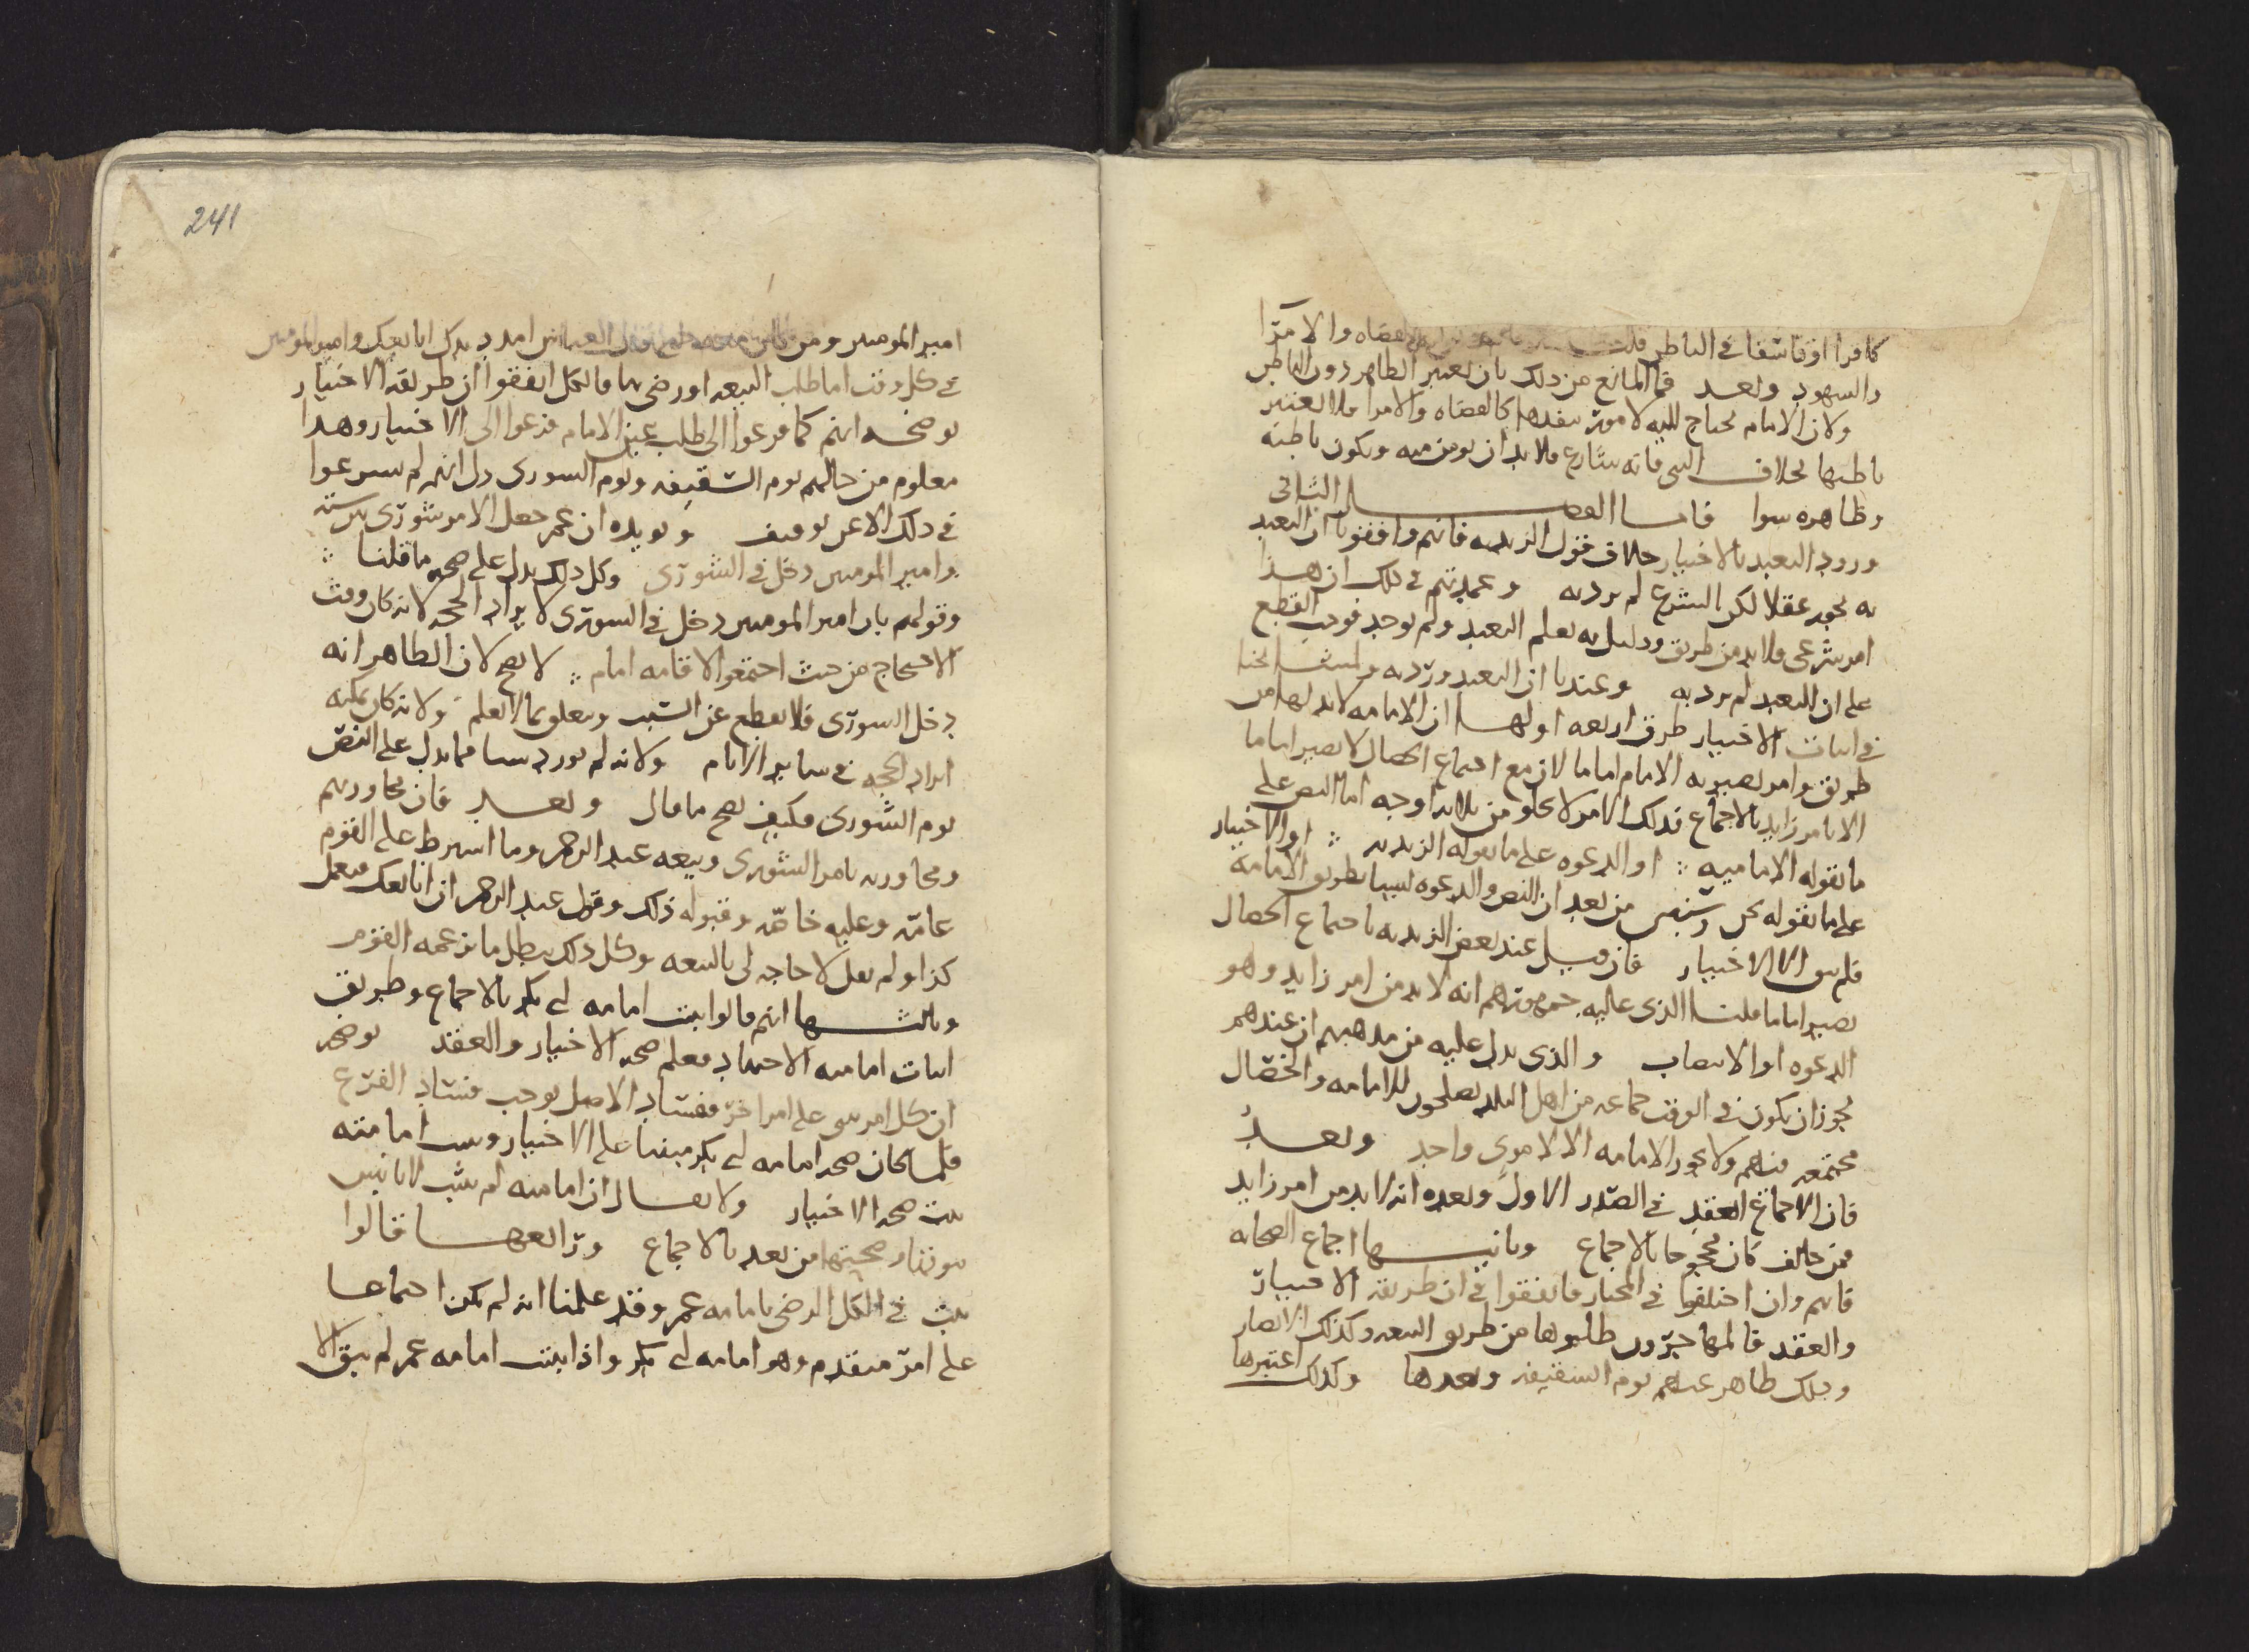 كافرا او فاسقا في الباطن قلنا القضاه والامرا
والشهود وبعد فما المانع من ذلك بان يعتبر الظاهر دون الباطن
ولان الامام يحتاج اليه لامور ينفذها كالقضاه والامرا فلا يعتبر
باطنها بخلاف النبي فانه شارع فلا بد ان يومن منه ويكون باطنه
وظاهره سوا فاما الفصل الثاني
ورود التعبد بالاختيار خلاف قول الزيديه فانهم وافقونا ان التعبد
به يجوز عقلا لكن الشرع لم يرد به وعمدتهم في ذلك ان هذا
امر شرعي فلا بد من طريق ودليل به يعلم التعبد ولم يوجد فوجب القطع
على ان التعبد لم يرد به وعندنا ان التعبد ورد به
في اثبات الاختيار طرق اربعه اولها ان الامامه لا بد لها من
طريق وامر يصير به الامام اماما لان مع اجتماع الخصال لا يصير اماما
الا بامر زايد بالاجماع فذلك الامر لا يخلو من ثلاثه اوجه اما النص على
ما تقوله الاماميه او الدعوه على ما تقوله الزيديه او الاختيار
على ما نقوله نحن وسنبين من بعد ان النص والدعوه ليسا بطريق الامامه
فلم يبق الا الاختيار فان قيل عند بعض الزيديه باجتماع الخصال
يصير اماما قلنا الذي عليه جمهورهم انه لا بد من امر زايد وهو
الدعوه او الانتصاب والذي يدل عليه من مذهبهم ان عندهم
يجوز ان يكون في الوقت جماعه من اهل البلد يصلحون للامامه والخصال
مجتمعه فيهم ولا يجوز الامامه الا لامرئ واحد وبعد
فان الاجماع انعقد في الصدر الاول وبعده انه لا بد من امر زايد
فمن خالف كان محجوجا بالاجماع وثانيها اجماع الصحابه
فانهم وان اختلفوا في المختار فاتفقوا في ان طريقه الاختيار
والعقد فالمهاجرون طلبوها من طريق البيعه وكذلك الانصار
وذلك ظاهر عنهم يوم السقيفه وبعدها وكذلك اعتبرها
امير المومنين ومن كان معه العباس امدد يدك ابايعك وامير المومنين
في كل وقت اما طلب البيعه او رضي بها فالكل اتفقوا ان طريقه الاختيار
يوضحه انهم كما فزعوا الى طلب عين الامام فزعوا الى الاختيار وهذا
معلوم من حالهم يوم السقيفه ويوم الشورى دل انهم لم يسرعوا
في ذلك الا عن توقيف ويويده ان عمر جعل الامر شورى بين سته
وامير المومنين دخل في الشورى وكل ذلك يدل على صحه ما قلنا
وقولهم بان امير المومنين دخل في الشورى لايراد الحجه لانه كان وقت
الاحتجاج من حيث اجتمعوا لاقامه امام لا يصح لان الظاهر انه
دخل الشورى فلا يقطع عن السبب ويعلق بما لا يعلم ولانه كان يمكنه
ايراد الحجه في ساير الايام ولانه لم يورد شيا مما يدل على النص
يوم الشورى فكيف يصح ما قال وبعد فان محاورتهم
ومحاورته بامر الشورى وبيعه عبد الرحمن وما اشترط على القوم
عامه وعليه خاصه وقبوله ذلك وقول عبد الرحمن ان ابايعك فتعمل
كذا ولم يقل لا حاجه لي بالبيعه وكل ذلك يبطل ما يزعمه القوم
وثالثها انهم قالوا ثبت امامه ابي بكر بالاجماع وطريق
اثبات امامته الاجتهاد فعلم صحه الاختيار والعقد يوضحه
ان كل امر بني على امر اخر ففساد الاصل يوجب فساد الفرع
فلما كان صحه امامه ابي بكر مبنيا على الاختيار وثبت امامته
ثبت صحه الاختيار ولا يقال ان امامته لم تثبت الا باثنين
من بعد بالاجماع ورابعها قالوا
ثبت في الكل الرضى بامامه عمر وقد علمنا انه لم يكن اجماعا
على امر متقدم وهو امامه ابي بكر واذا ثبت امامه عمر لم يبق الا
241